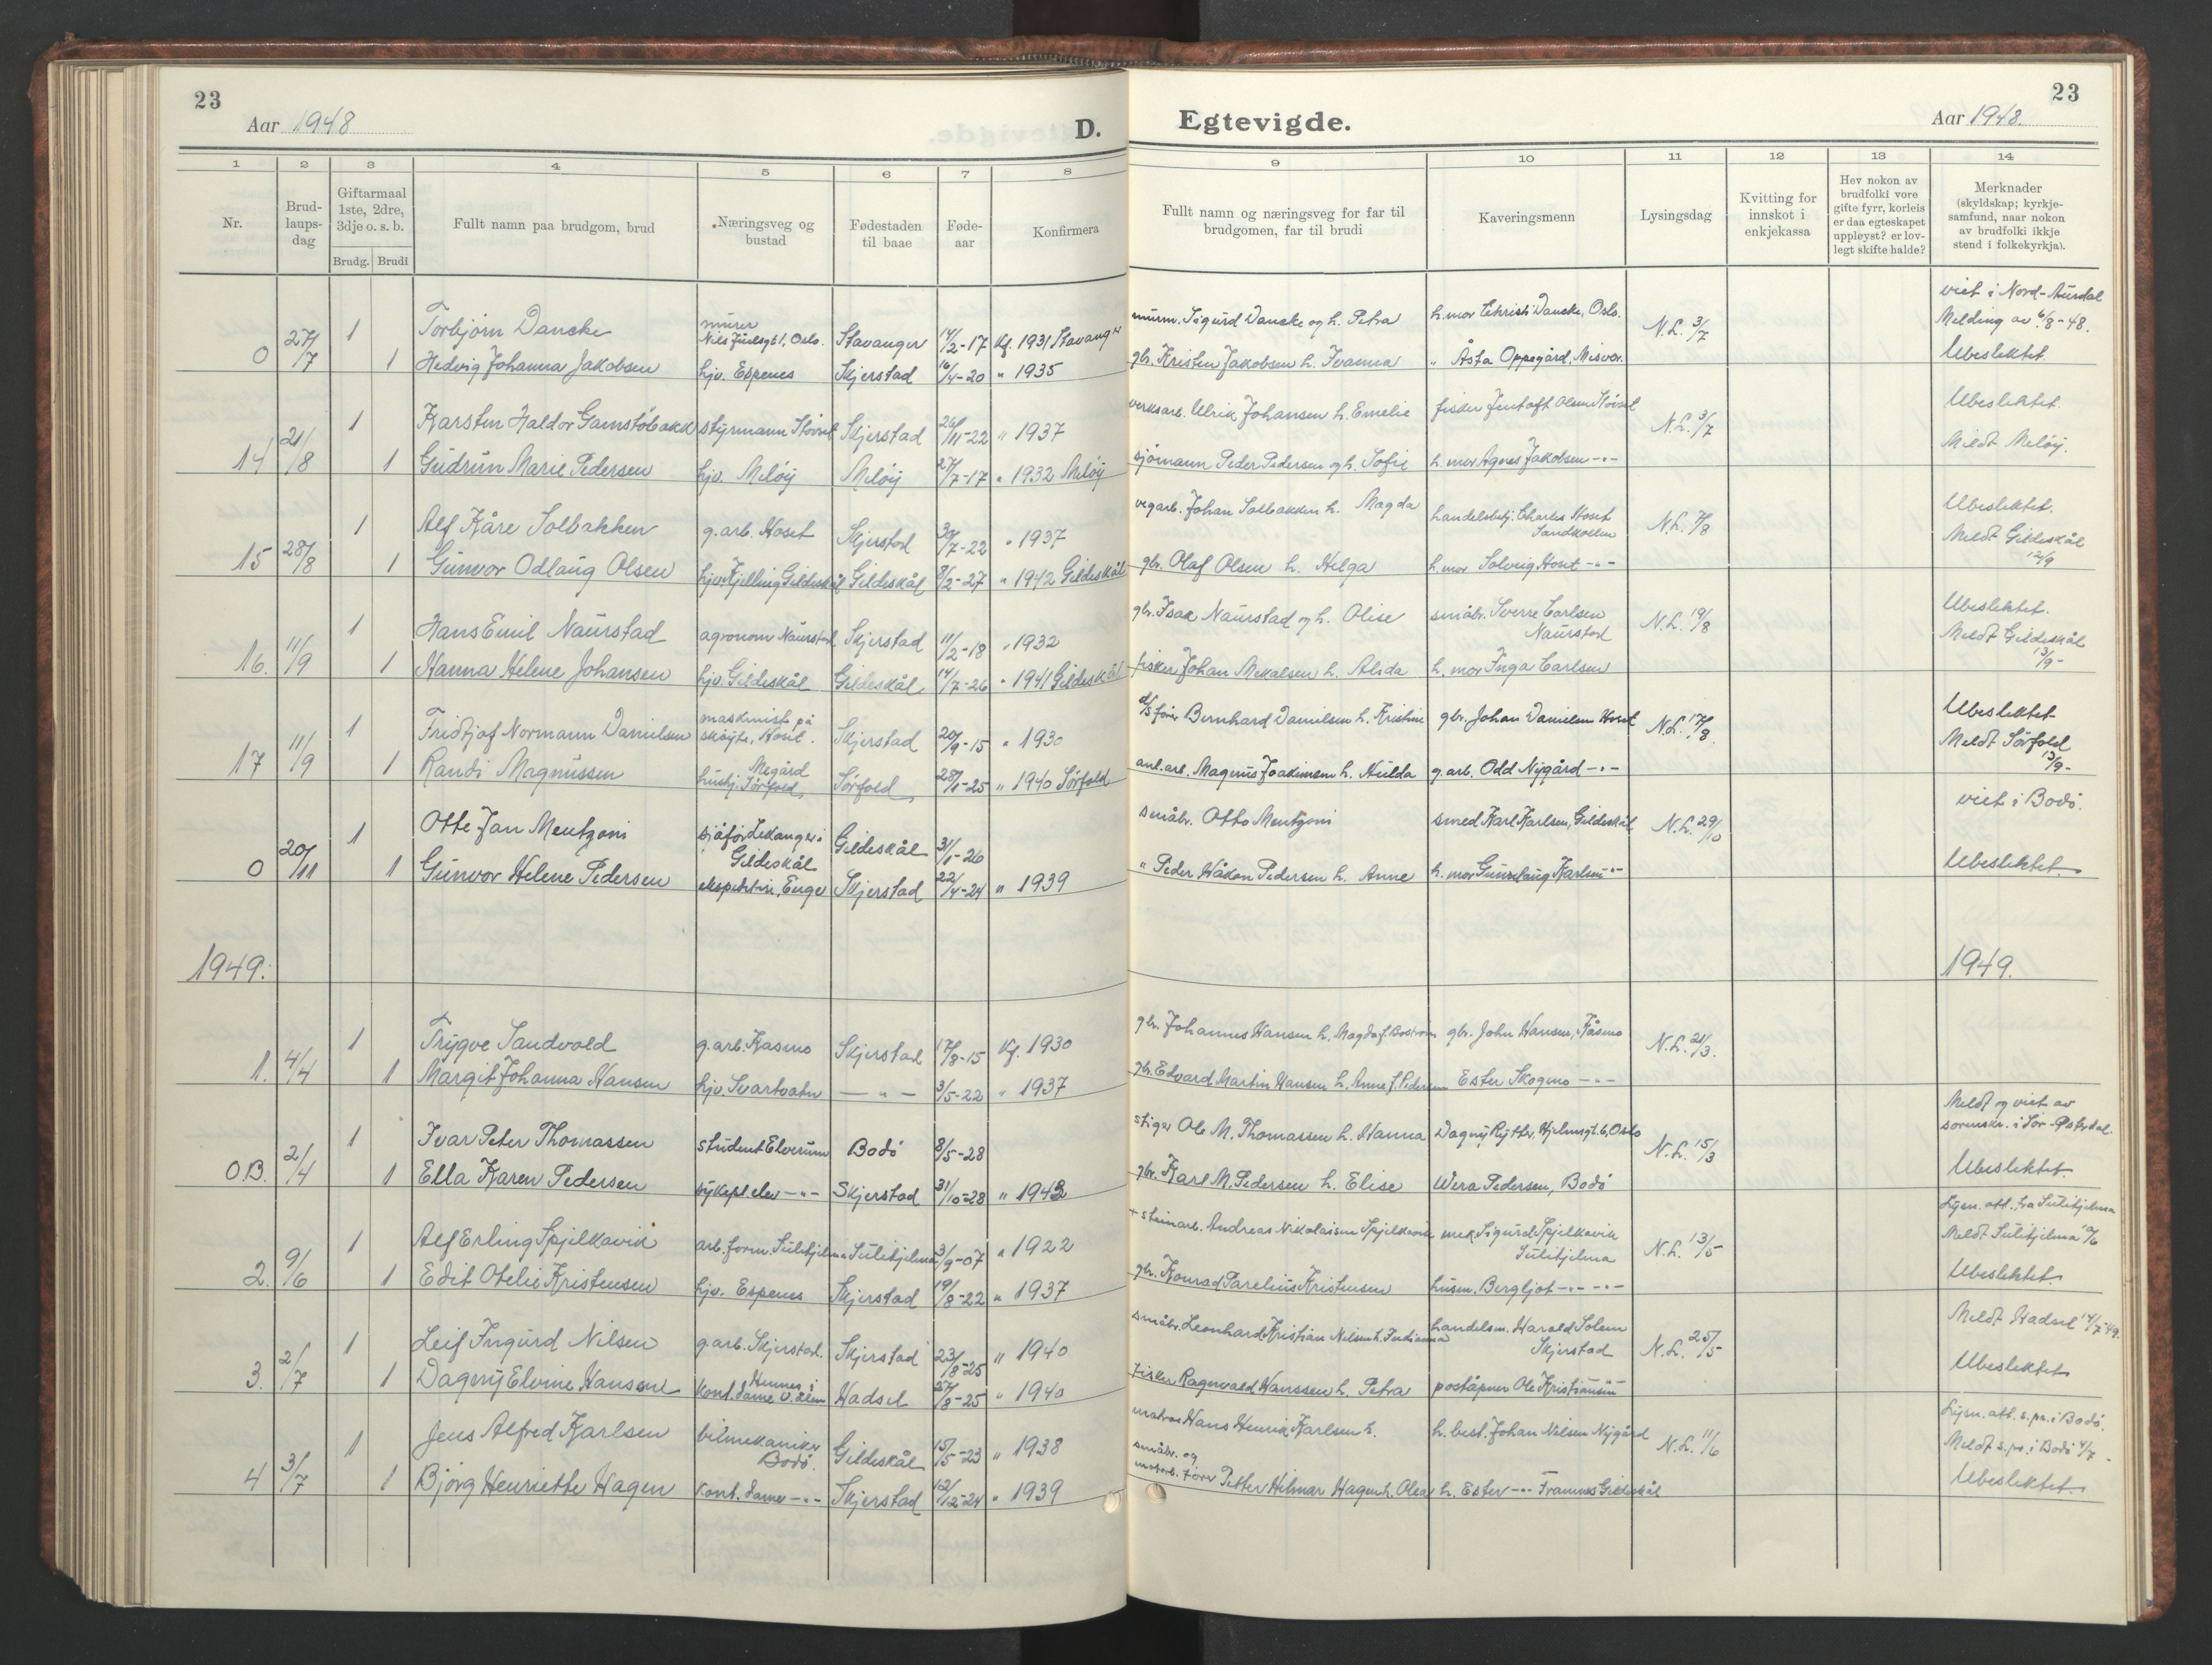 23
Aar 1948
D.
Egtevigde.
Aar 1948.
23
1 2 3 4 5 6 7 8 9 10 11 12 13 14
Nr.
Brud-
laups-
dag
Giftarmaal
1ste, 2dre,
3dje o. s. b.
Brudg. Brudi
Fullt namn paa brudgom, brud
Næringsveg og
bustad
Fødestaden
til baae
Føde-
aar
Konfirmera
Fullt namn og næringsveg for far til
brudgomen, far til brudi
Kaveringsmenn
Lysingsdag
Kvitting for
innskot i
enkjekassa
Hev nokon av
brudfolki vore
gifte fyrr, korleis
er daa egteskapet
uppløyst? er lov-
legt skifte halde?
Merknader
(skyldskap; kyrkje-
samfund, naar nokon
av brudfolki ikkje
stend i folkekyrkja).
0 27/7 1 Torbjørn Dancke murer Nils Juelsgt 1, Oslo. Stavanger 14/2-17 Kg. 1931 Stavanger murm. Sigurd Dancke og h. Petra h.mor Dancke, Oslo. N.L. 3/7 viet i Nord-Aurdal Melding av 6/8-48.
1 Hedvig Johanna Jakobsen hjv. Espenes Skjerstad 16/4-20 " 1935 gbr. Kristen Jakobsen h. Ivanna " Åsta Oppegård, Misvær. Ubeslektet.
14 21/8 1 Karsten Haldor Gamstøbakk styrmann Støvset Skjerstad 26/11-22 " 1937 verksarb. Ulrik Johansen h. Emelie fisker Jentoft Olsen Støvset N.L. 3/7 Ubeslektet.
1 Gudrun Marie Pedersen hjv. Meløy Meløy 27/7-17 " 1932 Meløy sjømann Peder Pedersen og h. Sofie h. mor Agnes Jakobsen -"- Meldt Meløy.
15 28/8 1 Alf Kåre Solbakken g.arb. Hoset Skjerstad 30/7-22 " 1937 vegarb. Johan Solbakken h. Magda handelsbetj. Charles Hoset Sandkollen N.L. 7/8 Ubeslektet.
1 Gunvor Odlaug Olsen hjv. Kjelling Gildeskål Gildeskål 8/2-27 " 1942 Gildeskål gbr. Olaf Olsen h. Helga h. mor Solveig Hoset -"- Meldt Gildeskål 12/9
16. 11/9 1 Hans Emil Naurstad agronom Naurstad Skjerstad 11/2-18 " 1932 gbr. Isak Naurstad og h. Olise småbr. Sverre Carlsen Naurstad N.L. 19/8 Ubeslektet.
1 Hanna Helene Johansen hjv. Gildeskål Gildeskål 14/7-26 " 1941 Gildeskål fisker Johan Mekalsen h. Alida h. mor Inga Carlsen Meldt Gildeskål 13/9-
17 11/9 1 Fridtjof Normann Danielsen maskinist på skøyte, Hoset. Skjerstad 20/9-15 " 1930 d/s fører Bernhard Danielsen h. Kristine gbr. Johan Danielsen Hoset N.L. 17/8. Ubeslektet
1 Randi Magnussen hushj. Megård Sørfold, Sørfold, 28/1-25 " 1940 Sørfold anl. arb. Magnus Joakimsen h. Hulda g.arb. Odd Nygård -"- Meldt Sørfold 13/9-
0 20/11 1 Otto Jan Mentzoni sjåfør Lekanger i Gildeskål Gildeskål 31/1-26 småbr. Otto Mentzoni smed Karl Karlsen, Gildeskål N.L. 29/10 viet i Bodø.
1 Gunvor Helene Pedersen ekspeditrise, Enge Skjerstad 22/4-24 " 1939 " Peder Håkon Pedersen h. Anne h. mor Gunnlaug Karlsen -"- Ubeslektet.
1949. 1949.
1. 4/4 1 Trygve Sandvold g.arb. Kasmo Skjerstad 17/8-15 Kg. 1930 gbr. Johannes Hansen h. Magda f. Bostrøm gbr. John Hansen, Kåsmo N.L. 21/3.
1 Margit Johanna Hansen hjv. Svartvatn - " - 3/5-22 " 1937 gbr. Edvard Martin Hansen h. Anne f. Pedersen Ester Skogmo -"-
O.B. 2/4 1 Ivar Peter Thomassen student Elverum Bodø 8/5-28 stiger Ole M. Thomassen h. Hanna Dagny Rytter, Hjelmsgt. 6, Oslo N.L. 15/3 Meldt og viet av sorenskr. i Sør-Østerdal.
1 Ella Karen Pedersen sykepl. elev -"- Skjerstad 31/10-28 " 1943 gbr. Karl M. Pedersen h. Elise Wera Pedersen, Bodø Ubeslektet.
2. 9/6 1 Alf Erling Spjelkavik arb. form. Sulitjelma Sulitjelma 3/9-07 " 1922 + steinarb. Andreas Nikolaisen Spjelkavik mek. Sigurd Spjelkavik Sulitjelma N.L. 13/5 Lysn. att. fra Sulitjelma Meldt Sulitjelma
1 Edit Otelie Kristensen hjv. Espenes Skjerstad 19/8-22 " 1937 gbr. Konrad Parelius Kristensen husm. Bergljot -"- -"- Ubeslektet.
3. 2/7 1 Leif Ingurd Nilsen g.arb. Skjerstad. Skjerstad 23/8-25 " 1940 småbr. Leonhard Kristian Nilsen h. Indianna handelsm. Harald Solem Skjerstad N.L. 25/5 Meldt Hadsel 14/7-49.
1 Dagny Elvine Hanssen kont. dame Hennes i V. ålen Hadsel 27/8-25 " 1940 fisker Ragnvald Hanssen h. Petra poståpner Ole Kristiansen -"- Ubeslektet
4 3/7 1 Jens Alfred Karlsen bilmekaniker Bodø. Gildeskål 15/5-23 " 1938 matros Hans Henrik Karlsen h. h. best. Johan Nilsen Nygård N.L. 11/6 Lysn. att. s.pr. i Bodø. Meldt s.pr. i Bodø 4/7.
1 Bjørg Henriette Hagen kont. dame -"- Skjerstad 12/12-24 " 1939 småbr. og motorb. fører Petter Hilmar Hagen h. Olea h. Ester -"- Framnes Gildeskål Ubeslektet.